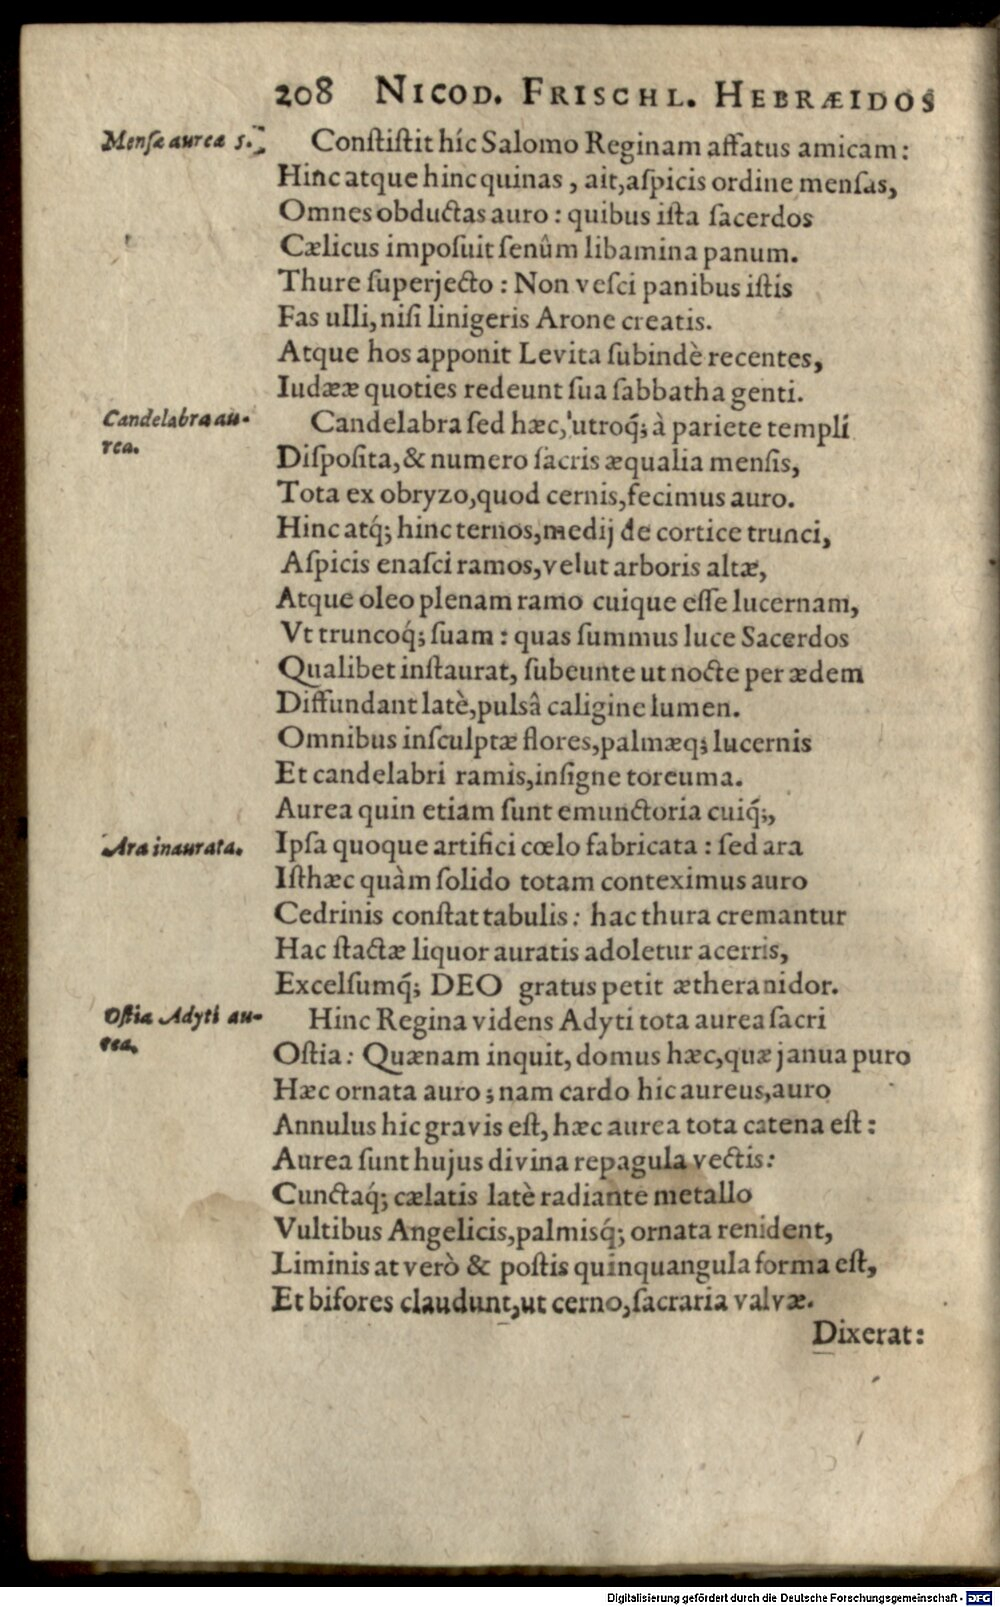 208 NICOD. FRISCHL. HEBRÆIDOS
Mensæ aureæ 5.
Constistit híc Salomo Reginam affatus amicam:
Hinc atque hinc quinas, ait, aspicis ordine mensas,
Omnes obductas auro: quibus ista sacerdos
Cælicus imposuit senûm libamina panum.
Thure superjecto: Non vesci panibus istis
Fas ulli, nisi linigeris Arone creatis.
Atque hos apponit Levita subindè recentes,
Iudææ quoties redeunt sua sabbatha genti.
Candelabra au-
rea.
Candelabra sed hæc, utroq́; à pariete templi
Disposita, & numero sacris æqualia mensis,
Tota ex obryzo, quod cernis, fecimus auro.
Hinc atq́; hinc ternos, medij de cortice trunci,
Aspicis enasci ramos, velut arboris altæ,
Atque oleo plenam ramo cuique esse lucernam,
Vt truncoq́; suam: quas summus luce Sacerdos
Qualibet instaurat, subeunte ut nocte per ædem
Diffundant latè, pulsâ caligine lumen.
Omnibus insculptæ flores, palmæq; lucernis
Et candelabri ramis, insigne toreuma.
Aurea quin etiam sunt emunctoria cuiq́;,
Ara inaurata.
Ipsa quoque artifici cœlo fabricata: sed ara
Isthæc quàm solido totam conteximus auro
Cedrinis constat tabulis: hac thura cremantur
Hac stactæ liquor auratis adoletur acerris,
Excelsumq́; DEO gratus petit æthera nidor.
Ostia Adyti au-
rea.
Hinc Regina videns Adyti tota aurea sacri
Ostia: Quænam inquit, domus hæc, quæ janua puro
Hæc ornata auro; nam cardo hic aureus, auro
Annulus hic gravis est, hæc aurea tota catena est:
Aurea sunt hujus divina repagula vectis:
Cunctaq́; cælatis latè radiante metallo
Vultibus Angelicis, palmisq́; ornata renident,
Liminis at verò & postis quinquangula forma est,
Et bifores claudunt, ut cerno, sacraria valvæ.
Dixerat:
Digitalisierung gefördert durch die Deutsche Forschungsgemeinschaft - DFG